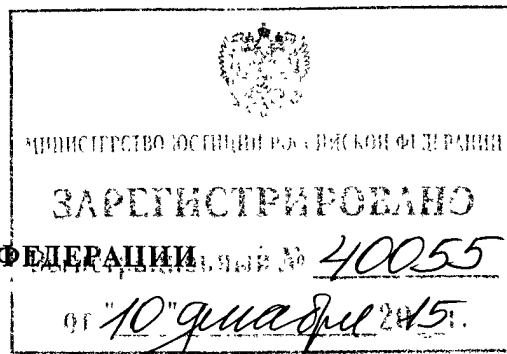 МИНИСТЕРСТВО ЮСТИЦИИ РОССИЙСКОЙ ФЕДЕРАЦИИ
ЗАРЕГИСТРИРОВАНО
ФЕДЕРАЦИИ
Регистрационный № 40055
от "10" декабря 2015 г.